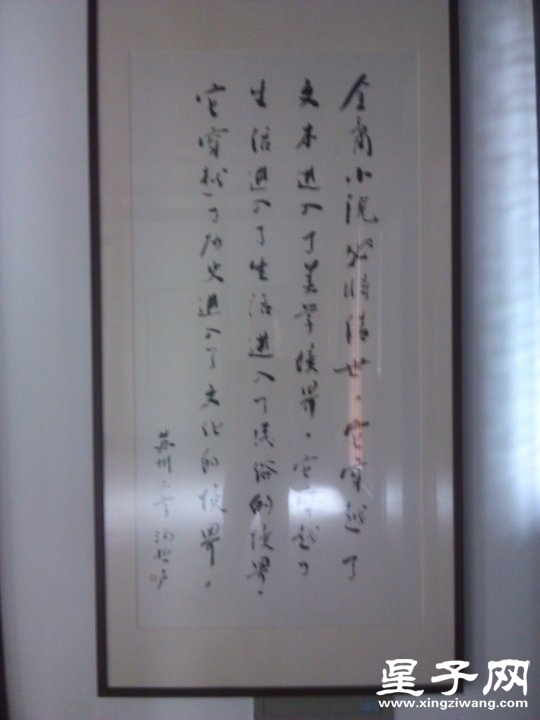 金庸小说必将传世。它穿越了
文本进入了美学境界。它穿越了
生活进入了生活进入了民俗的境界。
它穿越了历史进入了文化的境界。
苏州大学 汤哲声
星子网
www.xingziwang.com